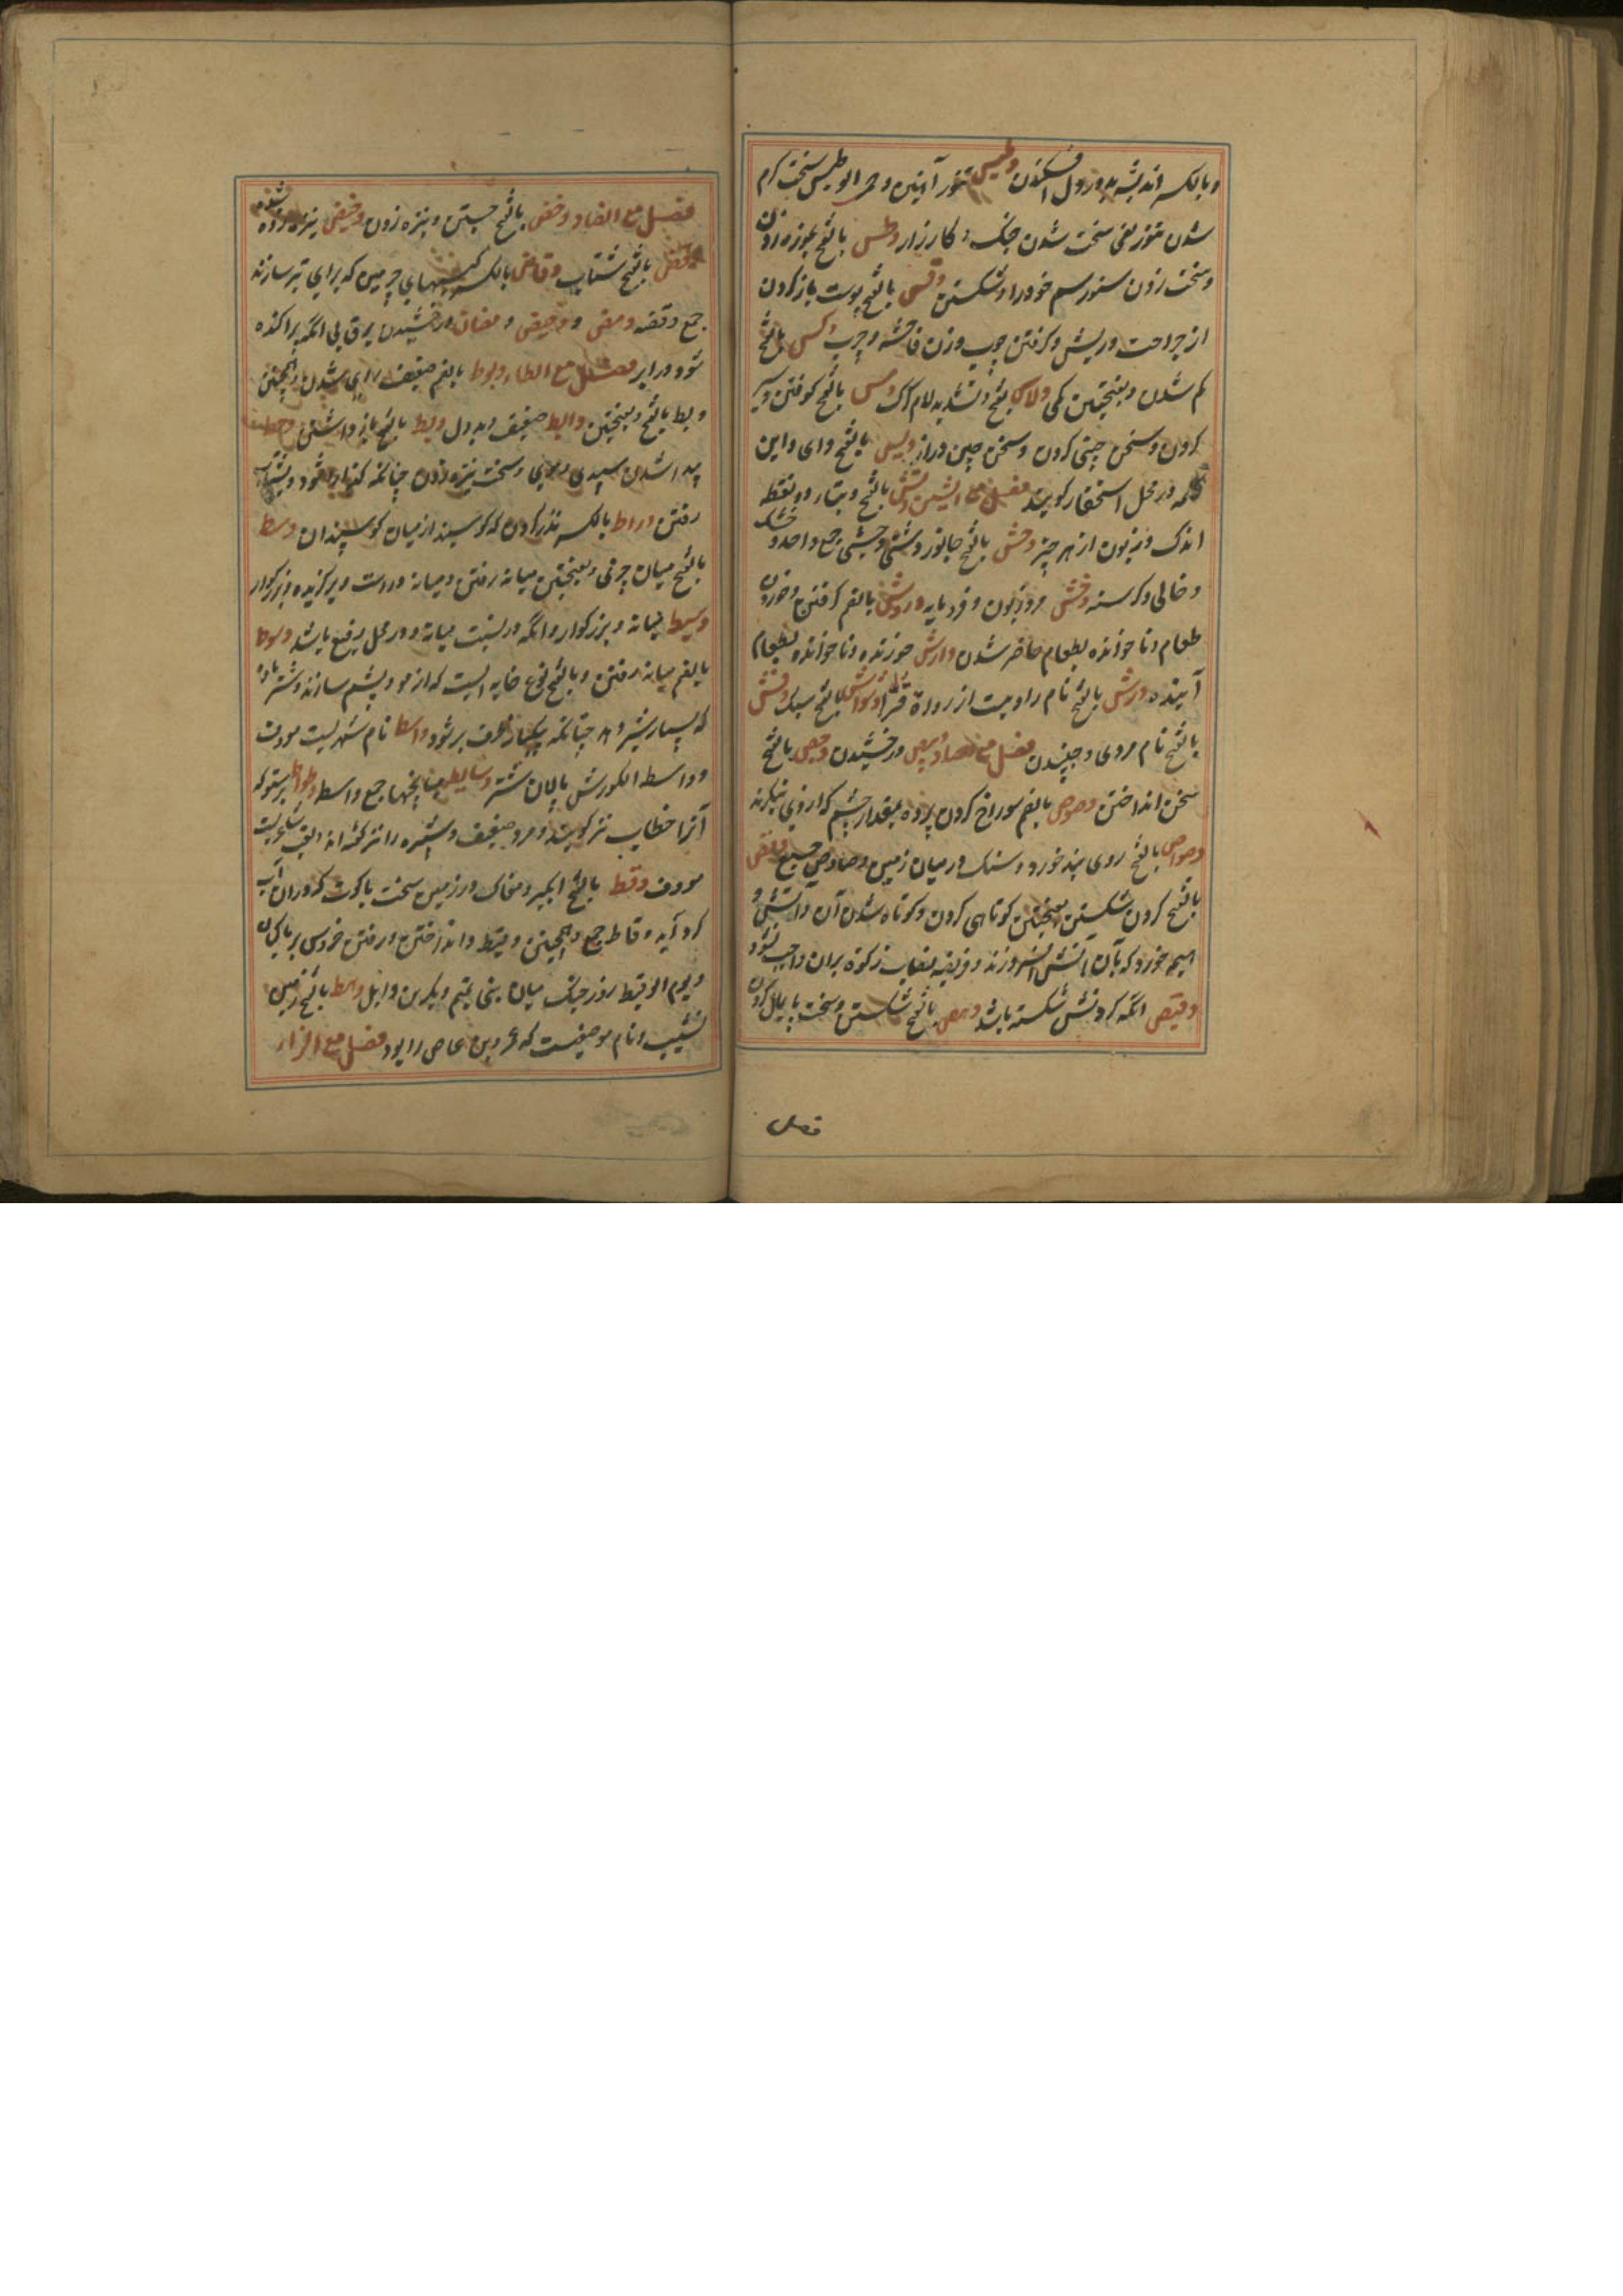 و بالکسر اندیشه بد در دل افکندن وطیس تنور آهنین و حمی الوطیس سخت گرم
شدن تنور یعنی سخت شدن جنگ و کارزار وطس بالفتح بموزه زدن
و سخت زدن ستور سم خود را و شکستن وقس بالفتح پوست باز کردن
از جراحت و ریش و گرفتن چوب و زن فاحشه و چرب وکس بالفتح
کم شدن و بفتحتین کمی ولاس بفتح و تشدید لام گرگ ومس بالفتح کوفتن و سیر
کردن و سخن چینی کردن و سخن چین و راز ویس بالفتح وای و این
کلمه در محل استحقار گویند فصل مع الشین وتش بالفتح و بتاء دو نقطه
اندک و زبون از هر چیز وحش بالفتح جانور دشتی وحشی جمع واحد و خشک
و خالی و گرسنه وخش مرد زبون و فرومایه وروش بالضم گرفتن و خوردن
طعام و ناخوانده بطعام حاضر شدن وارش خورنده و ناخوانده بطعام
آینده ورش بالفتح نام راویست از رواة قرا وشواش بالفتح سبک وقش
بالفتح نام مردی و جنبیدن فصل مع الصاد وبیص درخشیدن وحص بالفتح
سخن انداختن وصوص بالضم سوراخ کردن پرده بمقدار چشم که از وی نگرند
وصواص بالفتح روی بند خورد و سنگ در میان زمین وصاوص جمع وقص
بالفتح گردن شکستن بفتحتین کوتاهی گردن و کوتاه شدن آن و آتش و
هیمه خورد که بآن آتش افروزند و فریضه نصاب زکوة بران واجب نشود
وقیص آنکه گردنش شکسته باشد وهص بالفتح شکستن و سخت پایمال کردن
فصل
فصل مع الضاد وخض بالفتح جستن و نیزه زدن وخیض نیزه زده شده
وفض بالفتح شتاب وفاض بالکسر کیسهای چرمین که برای تیر سازند
جمع وفضه ومض وومیض و ومضان درخشیدن برق بی آنکه پراکنده
شود در ابر فصل مع الطاء وبوط بالضم ضعیف رای شدن و همچنین
وبط بالفتح و بفتحتین وابط ضعیف و بددل وبط بالفتح باز داشتن وخط
پیدا شدن سپیدی موی و سخت نیزه زدن چنانکه گذاره شود و بشتاب
رفتن وراط بالکسر نذر کردن که گوسپند از میان گوسپندان وسط
بالفتح میان چیزی و بفتحتین میانه رفتن و میانه و راست و برگزیده و بزرگوار
وسیط میانه و بزرگوار و آنکه در نسبت میانه و در محل رفیع باشد وسوط
بالضم میانه رفتن و بالفتح نوع خانه ایست که از مو و پشم سازند و شتر ماده
که بسیار شیر دهد چنانکه یکبار ظرف پر شود واسط نام شهریست معروف
و واسط الکور پیش پالان شتر وسایط میانجیها جمع واسط وطواط پرستو که
آنرا خطاف نیز گویند و مرد ضعیف و شپره را نیز گفته اند لقب شاعریست
معروف وقط بالفتح آبگیر و مغاک در زمین سخت یا کوه که دران آب
گرد آید وقاط جمع و همچنین وقیط و انداختن و رفتن خروس بر ماکیان
و یوم الوقیط روز جنگ میان بنی تمیم و بکر بن وایل وهط بالفتح زمین
نشیب و نام موضعیست که عمرو بن عاص را بود فصل مع الزاء